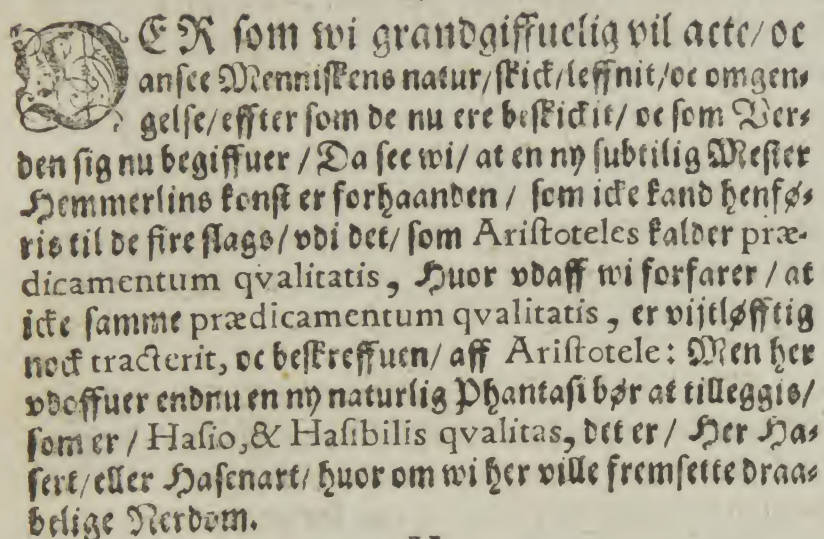 DER som wi grandgiffuelig vil acte/ oc
ansee Menniskens natur/ skick/ leffnit/ oc omgen-
gelse/ effter som de nu ere beskickit/ oc som Ver-
den sig nu begiffuer / Da see wi/ at en ny subtilig Mester
Hemmerlins konst er forhaanden / som icke kand henfø-
ris til de fire slags/ vdi det/ som Aristoteles kalder præ-
dicamentum qvalitatis, Huor vdaff wi forfarer / at
icke samme prædicamentum qvalitatis, er vijtløfftig
nock tracterit, oc beskreffuen/ aff Aristotele: Men her
vdoffuer endnu en ny naturlig Phantasi bør at tilleggis/
som er / Hasio, & Hasibilis qvalitas, det er / Her Ha-
sert/ eller Hasenart/ huor om wi her ville fremsette draa-
belige Nerdom.